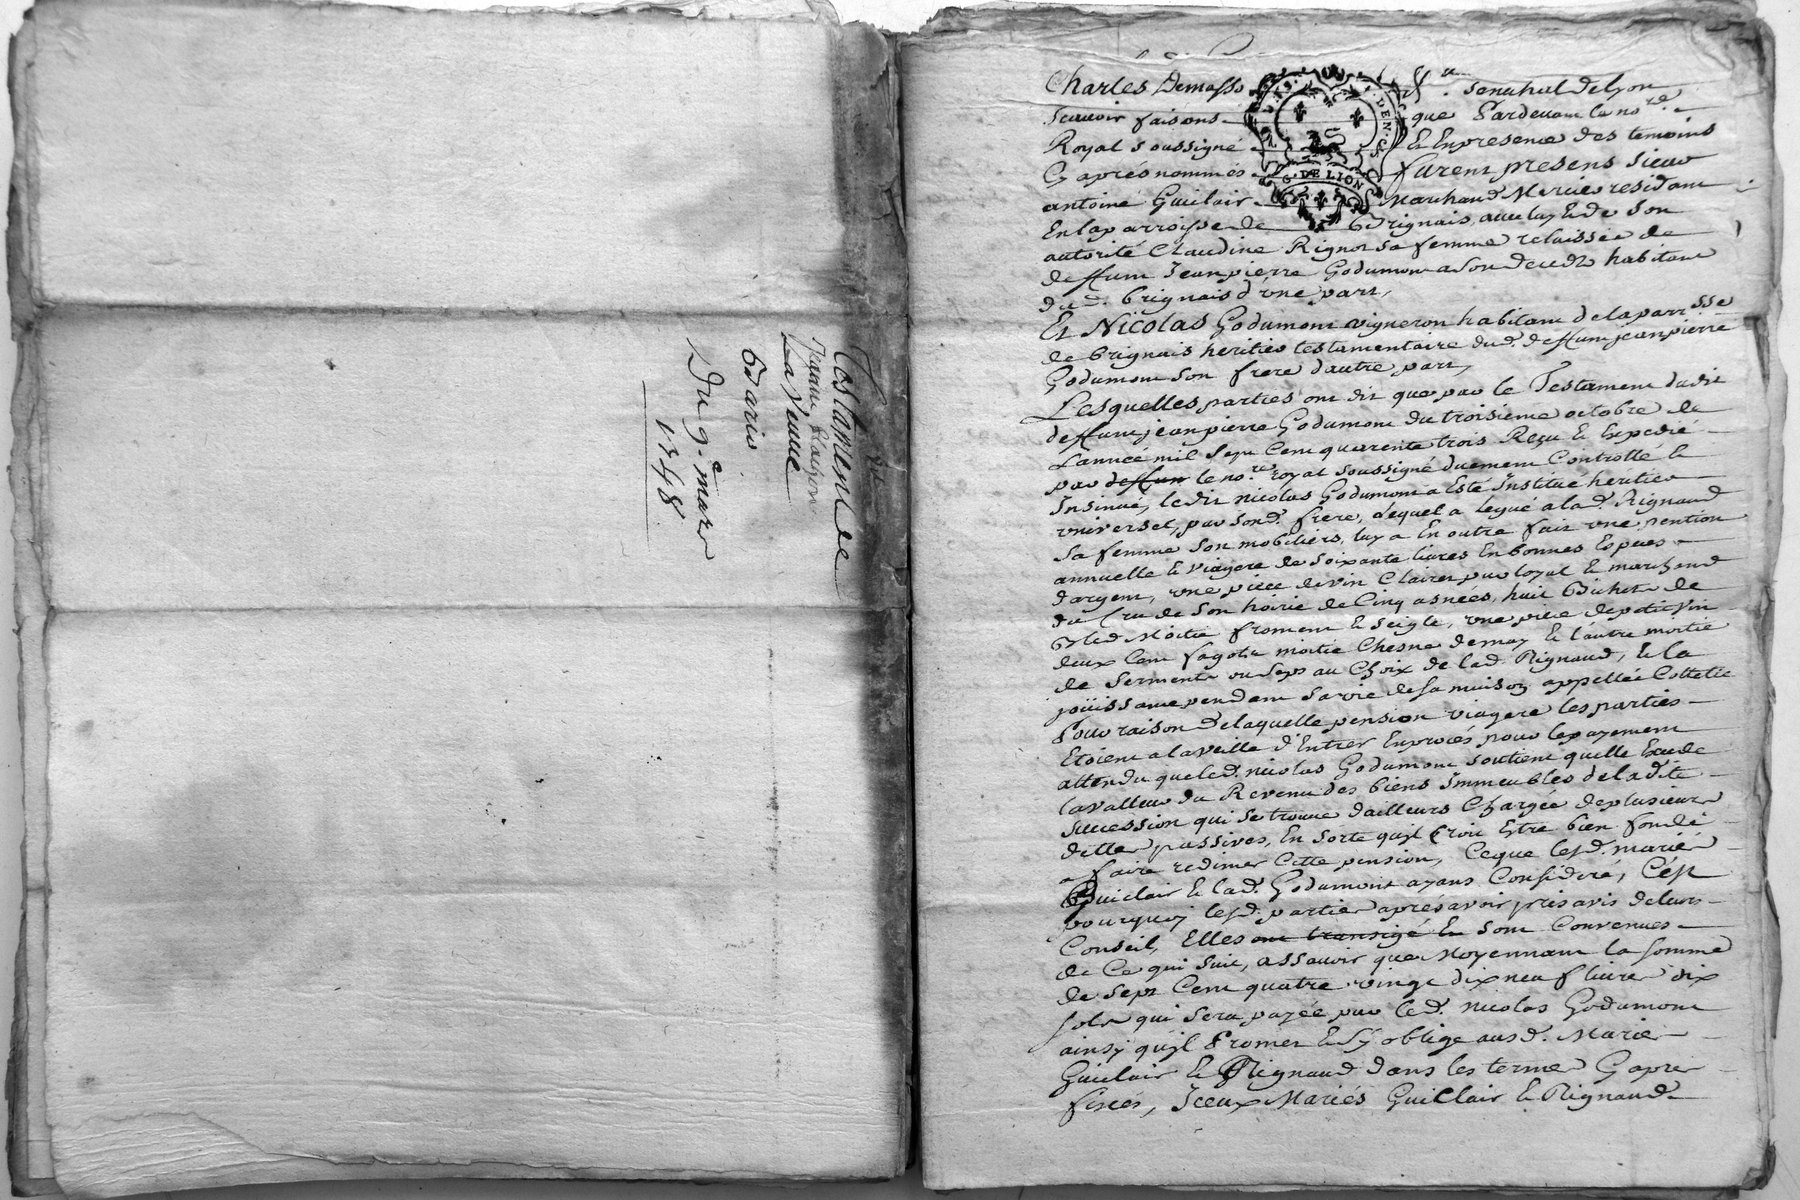 Testament de
Jeanne
La Veuve
Du 9.e mars
1748
Charles Demasso senechal de Lyon
Scavoir faisons que Pardevant le no.re
Royal soussigné Et En presence des temoins
Cy aprés nommés furent presens sieur
antoine Guiclair Marchand Mercier residant
En la parroisse de Brignais, avec luy E de son
autorité Claudine Rignor sa femme relaissée de
deffunt Jean pierre Godumont a son decedz habitant
du d. brignais d'une part,
Et Nicolas Godumont vigneron habitant de la parr.sse
de brignais heritier testamentaire du d. deffunt jean pierre
Godumont son frere d'autre part,
Lesquelles parties ont dit que par le Testament dudit
deffunt jean pierre Godumont du troisieme octobre de
L'année mil sept Cent quarente trois Reçu & Expedié
par deffun le no.re royal soussigné duement Controllé &
Insinué, ledit nicolas Godumont a Esté Institué heritier
universel, par son d. frere, lequel a legué a la d. Rignaud
sa femme son mobiliers, luy a En outre fait une pention
annuelle & viagere de soixante livres En bonnes Especes
d'argent, une piece de vin Clairet pur loyal & marchand
du Cru de son hoirie de Cinq asnées, huit Bichets de
Bled Moitié froment & seigle, une piece de petit vin
deux Cent fagots moitié Chesne de may & l'autre moitié
de serments ou seps au Choix de la d. Rignaud, & la
joüissance pendant sa vie de sa maison appellée
Pour raison de laquelle pension viagere les parties
Etoient a la veille d'Entrer En procés pour le payement
attendu que le d. nicolas Godumont soutient quelle Excede
la valleur du Revenu des biens Immeubles de la dite
succession qui se trouve d'ailleurs Chargée de plusieurs
dettes passives, En sorte qu'yl Croit Estre bien fondé
a faire redimer Cette pension, Ce que les d. mariés
Guiclair & la d. Godumont ayans Consideré, C'est
pourquoy les d. parties apres avoir pris avis de leurs
Conseil, Elles ont transigé & sont Convenues
de Ce qui suit, assavoir que Moyennant la somme
de sept Cent quatre vingt dix neuf livres dix
sols qui sera payée par le d. nicolas Godumont
ainsy qu'yl promet & s'y oblige aus d. Mariés
Guiclair & Rignaud dans les termes Cy apres
fixés, Iceux Mariés Guillair & Rignaud